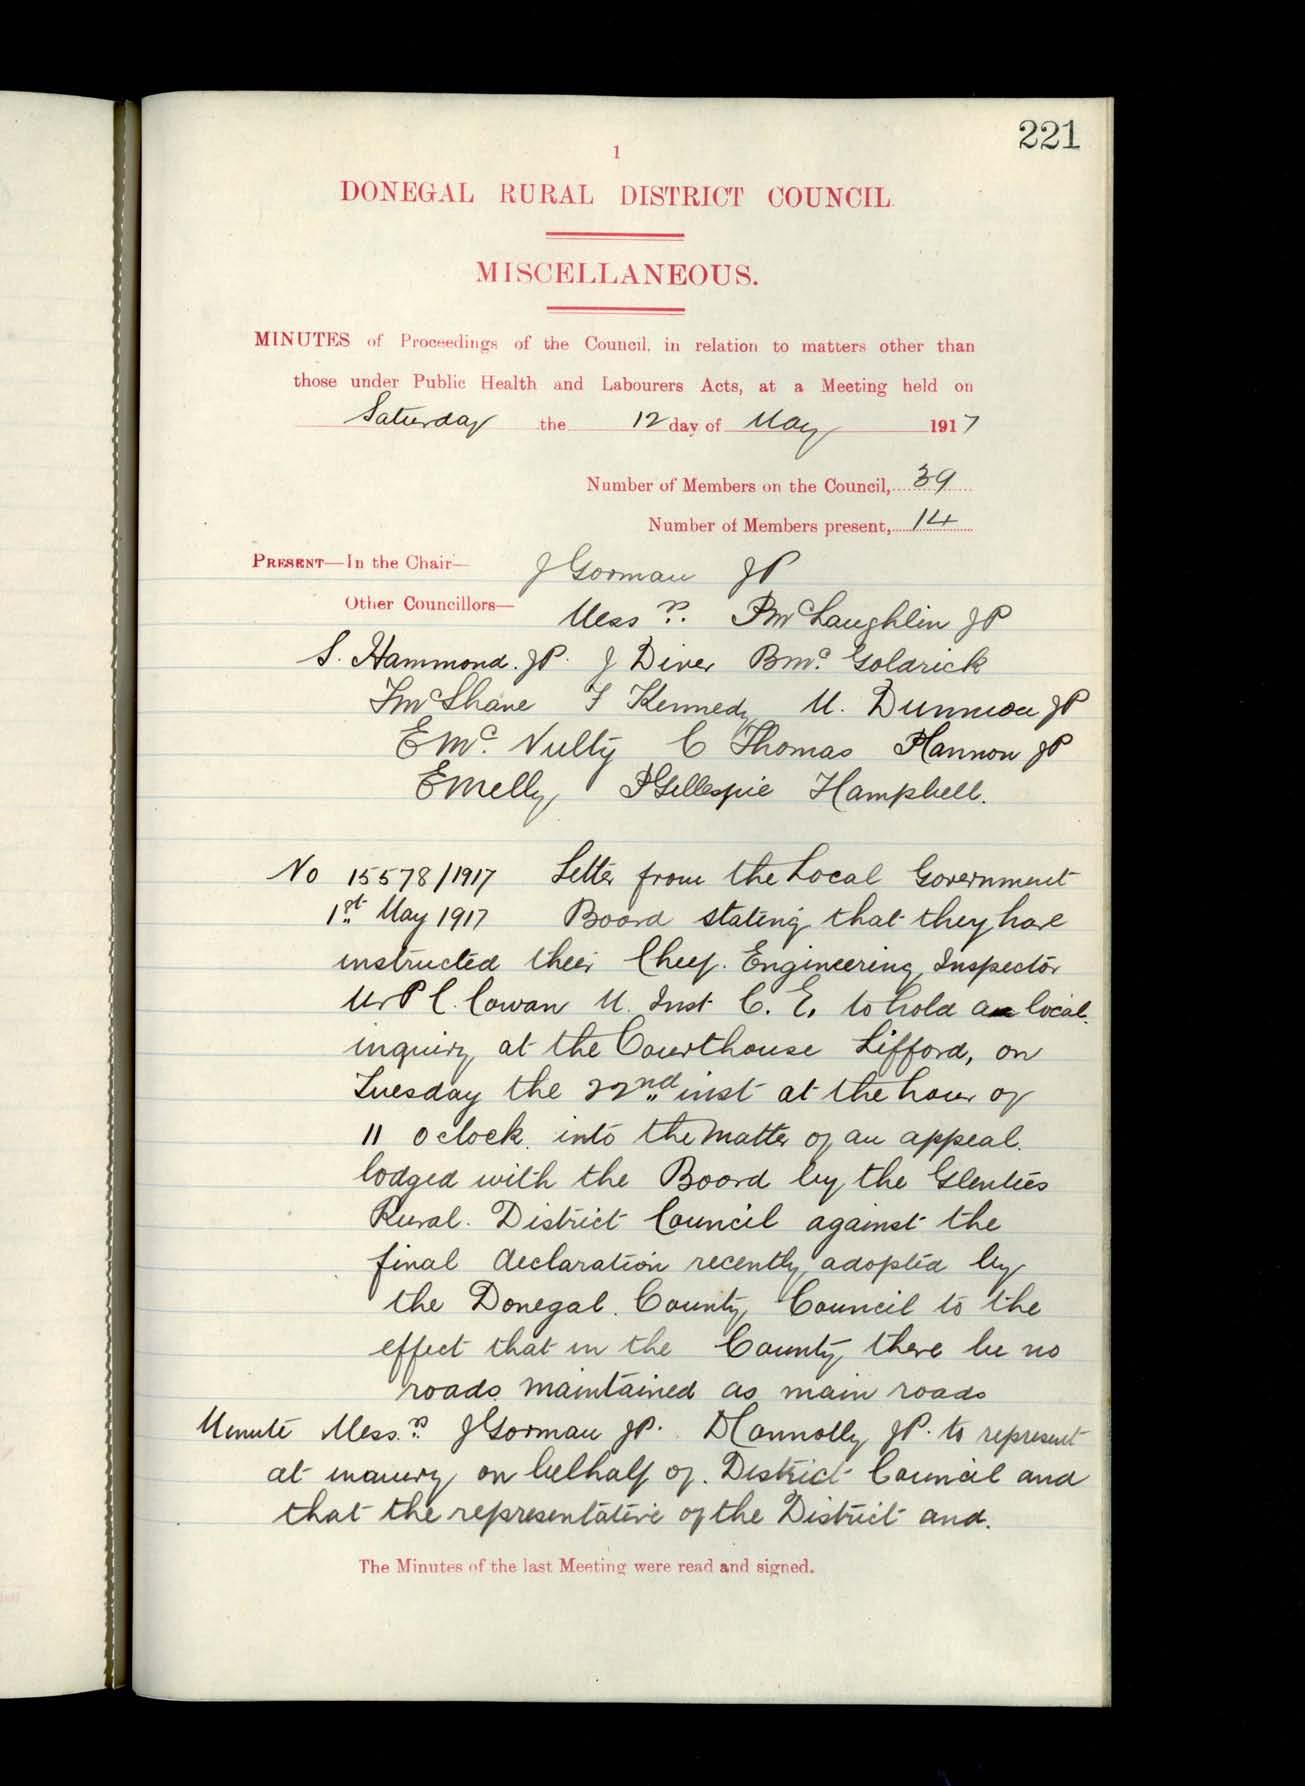 221
1
DONEGAL RURAL DISTRICT COUNCIL.
MISCELLANEOUS.
MINUTES of Proceedings of the Council, in relation to matters other than
those under Public Health and Labourers Acts, at a Meeting held on
Saturday the 12 day of May 1917
Number of Members on the Council, 39
Number of Members present, 14
PRESENT—In the Chair— J Gorman JP
Other Councillors— Messrs. P McLaughlin JP
S. Hammond. JP. J Diver B Mc. Goldrick
McShane F Kennedy M. Dunnion JP
E Mc. Nulty C Thomas P Hannon JP
E Melly P Gillespie H Campbell.
No 15578/1917 Letter from the Local Government
1st May 1917 Board stating that they have
instructed their Chief. Engineering Inspector
Mr P C. Cowan M. Inst C. E. to hold a local
inquiry at the Courthouse Lifford, on
Tuesday the 22nd inst at the hour of
11 o clock into the matter of an appeal
lodged with the Board by the Glenties
Rural. District Council against the
final declaration recently adopted by
the Donegal County Council to the
effect that in the County there be no
roads maintained as main roads
Minute Messrs. J Gorman JP. D Connolly JP. to represent
at inquiry on belhalf of. District Council and
that the representative of the District and.
The Minutes of the last Meeting were read and signed.